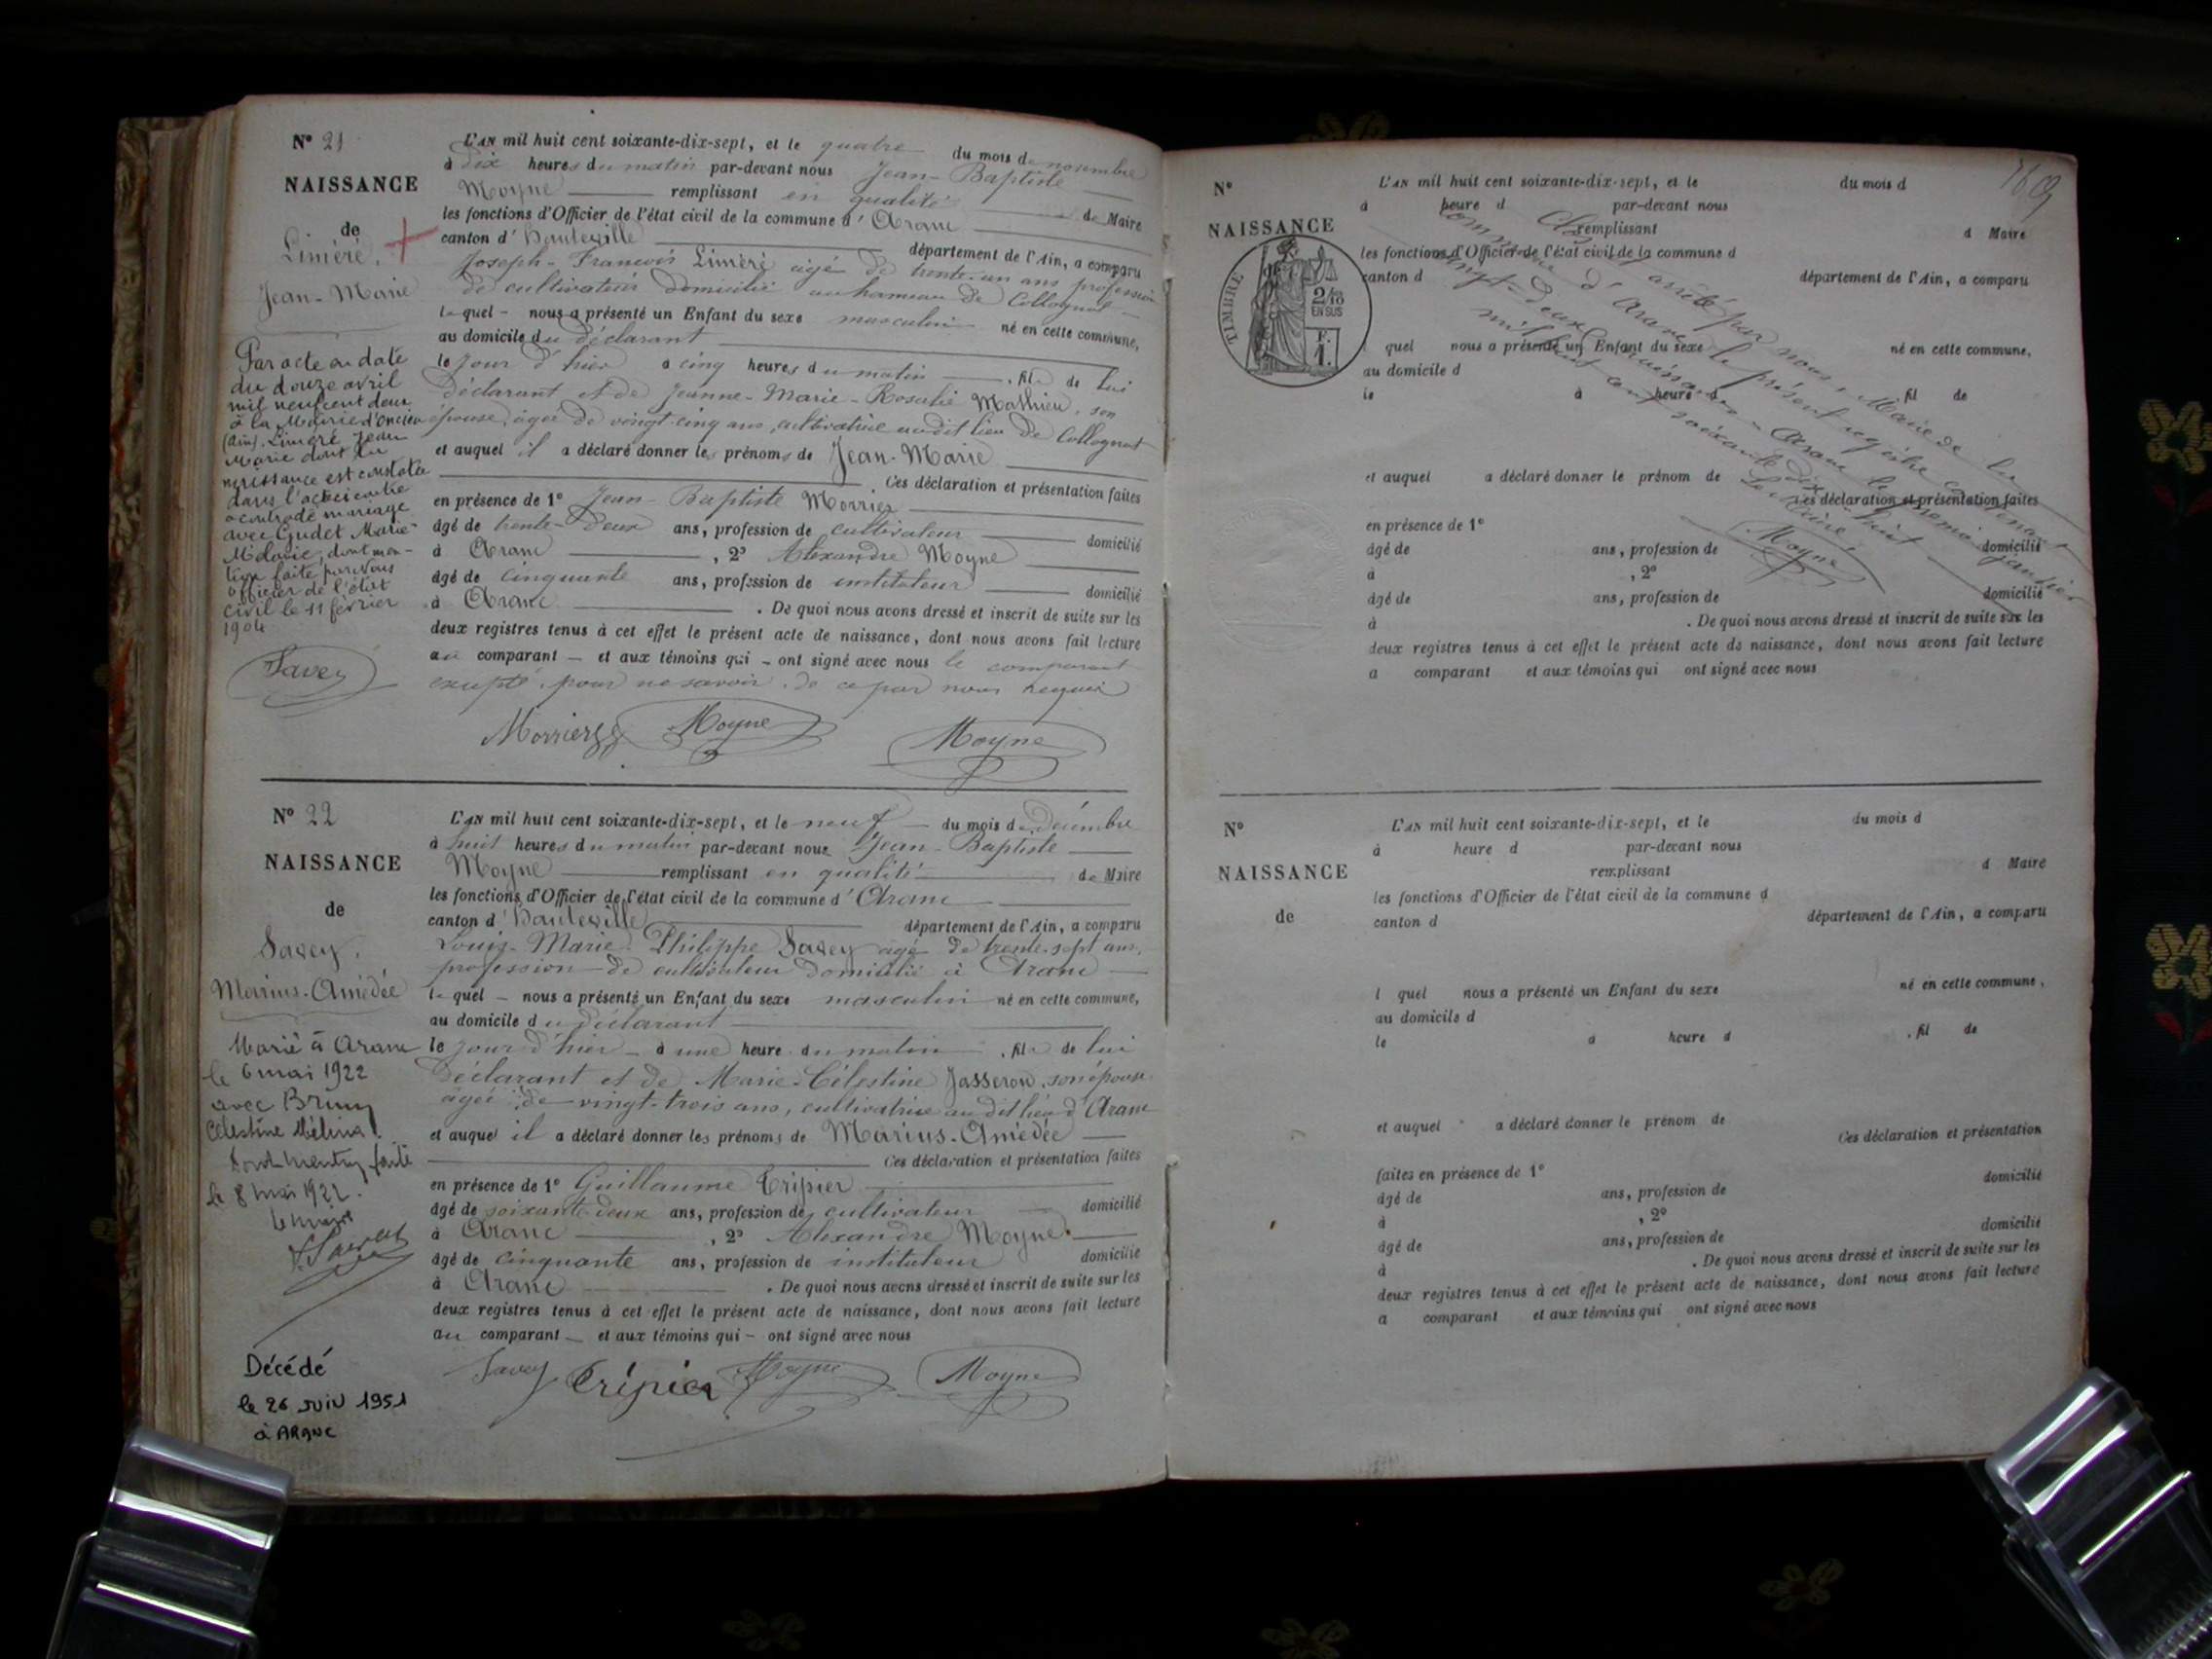 N° 21
NAISSANCE
de
Liméré,
Jean-Marie
Par acte en date
du douze avril
mil neuf cent deux
à la Mairie d'Oncieu
(Ain). Liméré Jean
Marie dont la
naissance est constatée
dans l'acte ci contre
a contracté mariage
avec Gudet Marie-
Mélanie, dont men-
tion faite par Nous
officier de l'état
civil le 11 février
1904
Savey
L'AN mil huit cent soixante-dix-sept, et le quatre du mois de novembre
à dix heures du matin par-devant nous Jean-Baptiste
Moyne remplissant en qualité de Maire
les fonctions d'Officier de l'état civil de la commune d'Aranc
canton d'Hauteville département de l'Ain, a comparu
Joseph-François Liméré âgé de trente-un ans profession
de cultivateur domicilié au hameau de Collognat
lequel nous a présenté un Enfant du sexe masculin né en cette commune,
au domicile du déclarant
le jour d'hier à cinq heures du matin, fils de lui
déclarant et de Jeanne-Marie-Rosalie Mathieu, son
épouse, âgée de vingt-cinq ans, cultivatrice au dit lieu de Collognat
et auquel il a déclaré donner les prénoms de Jean-Marie
Ces déclaration et présentation faites
en présence de 1° Jean-Baptiste Morrier
âgé de trente-deux ans, profession de cultivateur domicilié
à Aranc, 2° Alexandre Moyne
âgé de cinquante ans, profession de instituteur domicilié
à Aranc. De quoi nous avons dressé et inscrit de suite sur les
deux registres tenus à cet effet le présent acte de naissance, dont nous avons fait lecture
au comparant et aux témoins qui ont signé avec nous le comparant
excepté, pour ne savoir, de ce par nous requis
Morrier Moyne Moyne
N° 22
NAISSANCE
de
Savey,
Marius-Amédée
Marié à Aranc
le 6 mai 1922
avec Brun
Célestine Mélina
Dont mention faite
le 8 mai 1922.
le maire
Décédé
le 26 JUIN 1951
à ARANC
L'AN mil huit cent soixante-dix-sept, et le neuf du mois de Décembre
à huit heures du matin par-devant nous Jean-Baptiste
Moyne remplissant en qualité de Maire
les fonctions d'Officier de l'état civil de la commune d'Aranc
canton d'Hauteville département de l'Ain, a comparu
Louis-Marie Philippe Savey âgé de trente-sept ans,
profession de cultivateur domicilié à Aranc
lequel nous a présenté un Enfant du sexe masculin né en cette commune,
au domicile du déclarant
le jour d'hier à une heure du matin, fils de lui
déclarant et de Marie-Célestine Jasseron, son épouse
âgée de vingt-trois ans, cultivatrice au dit lieu d'Aranc
et auquel il a déclaré donner les prénoms de Marius-Amédée
Ces déclaration et présentation faites
en présence de 1° Guillaume Tripier
âgé de soixante-deux ans, profession de cultivateur domicilié
à Aranc, 2° Alexandre Moyne.
âgé de cinquante ans, profession de instituteur domicilié
à Aranc. De quoi nous avons dressé et inscrit de suite sur les
deux registres tenus à cet effet le présent acte de naissance, dont nous avons fait lecture
au comparant et aux témoins qui ont signé avec nous
Savey Tripier Moyne Moyne
N°
NAISSANCE
TIMBRE
2/10
EN SUS
F.
1.
L'AN mil huit cent soixante-dix-sept, et le du mois d
à heure d par-devant nous
remplissant d Maire
les fonctions d'Officier de l'état civil de la commune d
canton d département de l'Ain, a comparu
quel nous a présenté un Enfant du sexe né en cette commune,
au domicile d
le à heure d fil de
et auquel a déclaré donner le prénom de
Ces déclaration et présentation faites
en présence de 1°
âgé de ans, profession de domicilié
à , 2°
âgé de ans, profession de domicilié
à . De quoi nous avons dressé et inscrit de suite sur les
deux registres tenus à cet effet le présent acte de naissance, dont nous avons fait lecture
a comparant et aux témoins qui ont signé avec nous
Clos et arrêté par nous, Maire de la
commune d'Aranc le présent registre contenant
vingt-deux naissances. Aranc le premier janvier
mil huit cent soixante dix huit
Le Maire,
Moyne
N°
NAISSANCE
de
L'AN mil huit cent soixante-dix-sept, et le du mois d
à heure d par-devant nous
remplissant d Maire
les fonctions d'Officier de l'état civil de la commune d
canton d département de l'Ain, a comparu
l quel nous a présenté un Enfant du sexe né en cette commune,
au domicile d
le à heure d , fil de
et auquel a déclaré donner le prénom de
Ces déclaration et présentation
faites en présence de 1° domicilié
âgé de ans, profession de
à , 2° domicilié
âgé de ans, profession de
à . De quoi nous avons dressé et inscrit de suite sur les
deux registres tenus à cet effet le présent acte de naissance, dont nous avons fait lecture
a comparant et aux témoins qui ont signé avec nous